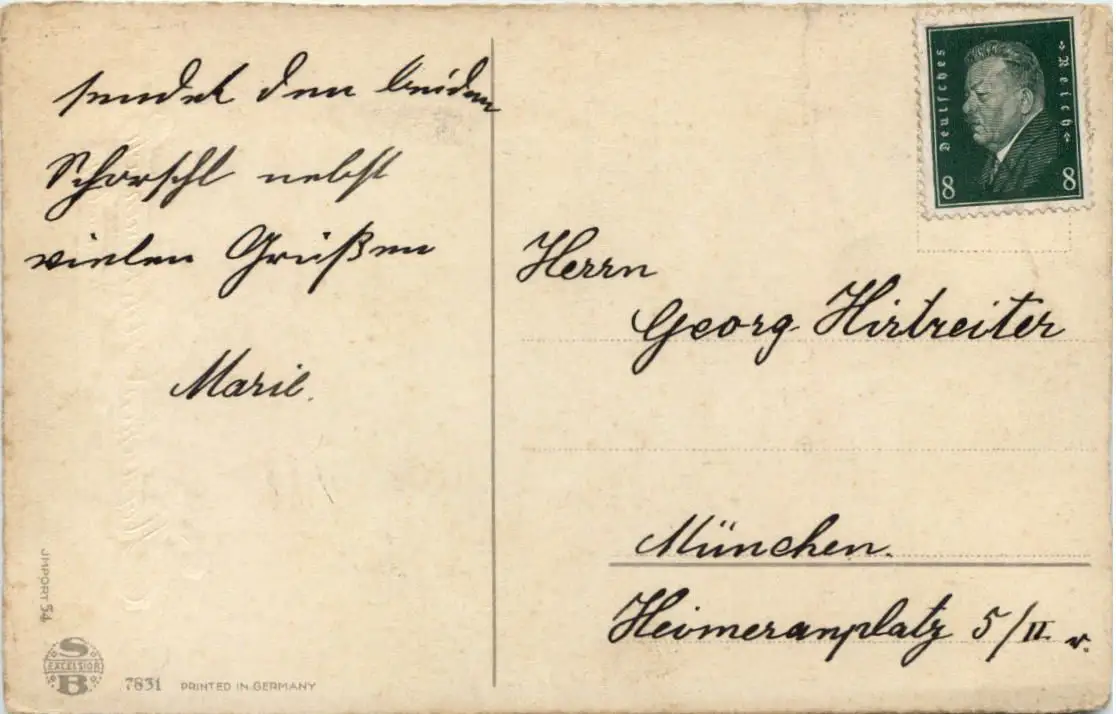 sendet den beiden
Schorschl nebst
vielen Grüßen
Marie.
Deutsches
»Reich«
8
8
Herrn
Georg Hirtreiter
München.
Heimeranplatz 5/II. r.
JMPORT 54
S
EXCELSIOR
B
7831 PRINTED IN GERMANY